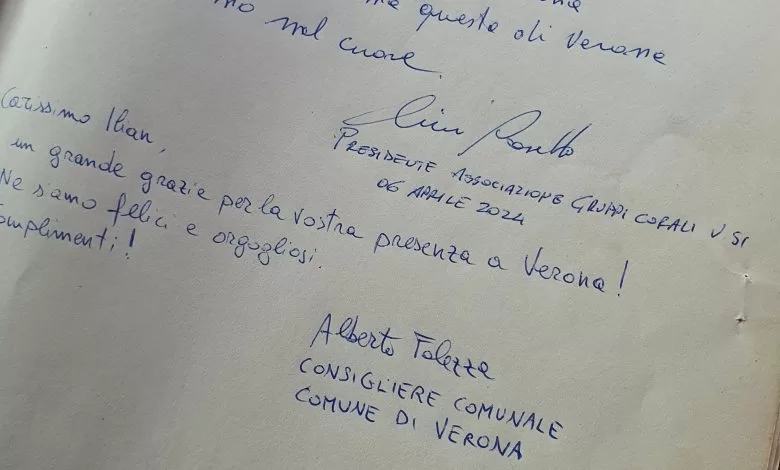 questa di Verona
mo nel cuore.
PRESIDENTE ASSOCIAZIONE GRUPPI CORALI V SI
06 APRILE 2024
Carissimo Ilian,
un grande grazie per la vostra presenza a Verona!
Ne siamo felici e orgogliosi.
omplimenti!
Alberto Falezza
CONSIGLIERE COMUNALE
COMUNE DI VERONA